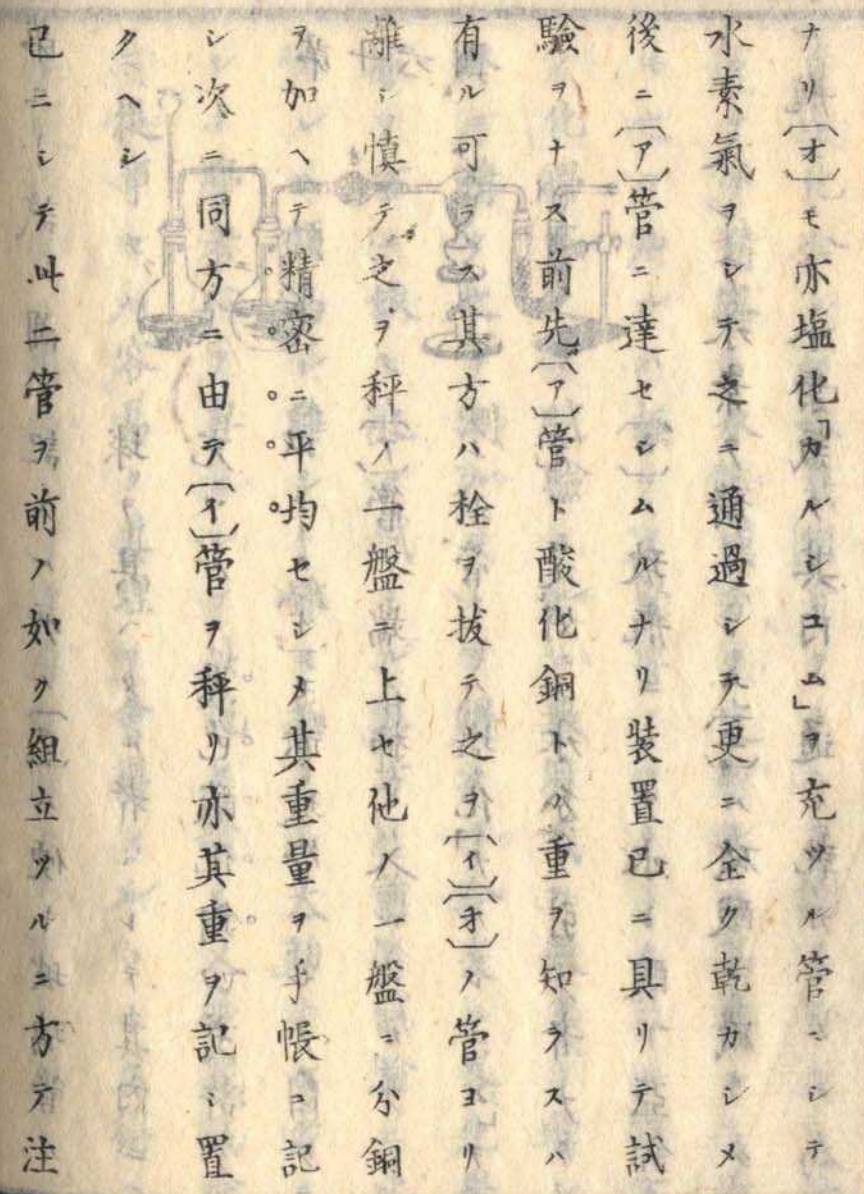 ナリ〔オ〕モ亦塩化「カルシユム」ヲ充ツル管ニシテ
水素氣ヲシテ之ニ通過シテ更ニ全ク乾カシメ
後ニ〔ア〕管ニ達セシムルナリ装置已ニ具リテ試
驗ヲナス前先〔ア〕管ト酸化銅トノ重ヲ知ラスハ
有ル可ラス其方ハ栓ヲ拔テ之ヲ〔イ〕〔オ〕ノ管ヨリ
離シ慎テ之ヲ秤ノ一盤ニ上セ他ノ一盤ニ分銅
ヲ加ヘテ精密ニ平均セシメ其重量ヲ手帳ニ記
シ次ニ同方ニ由テ〔イ〕管ヲ秤リ亦其重ヲ記シ置
クヘシ
已ニシテ此二管ヲ前ノ如ク組立ツルニ方テ注